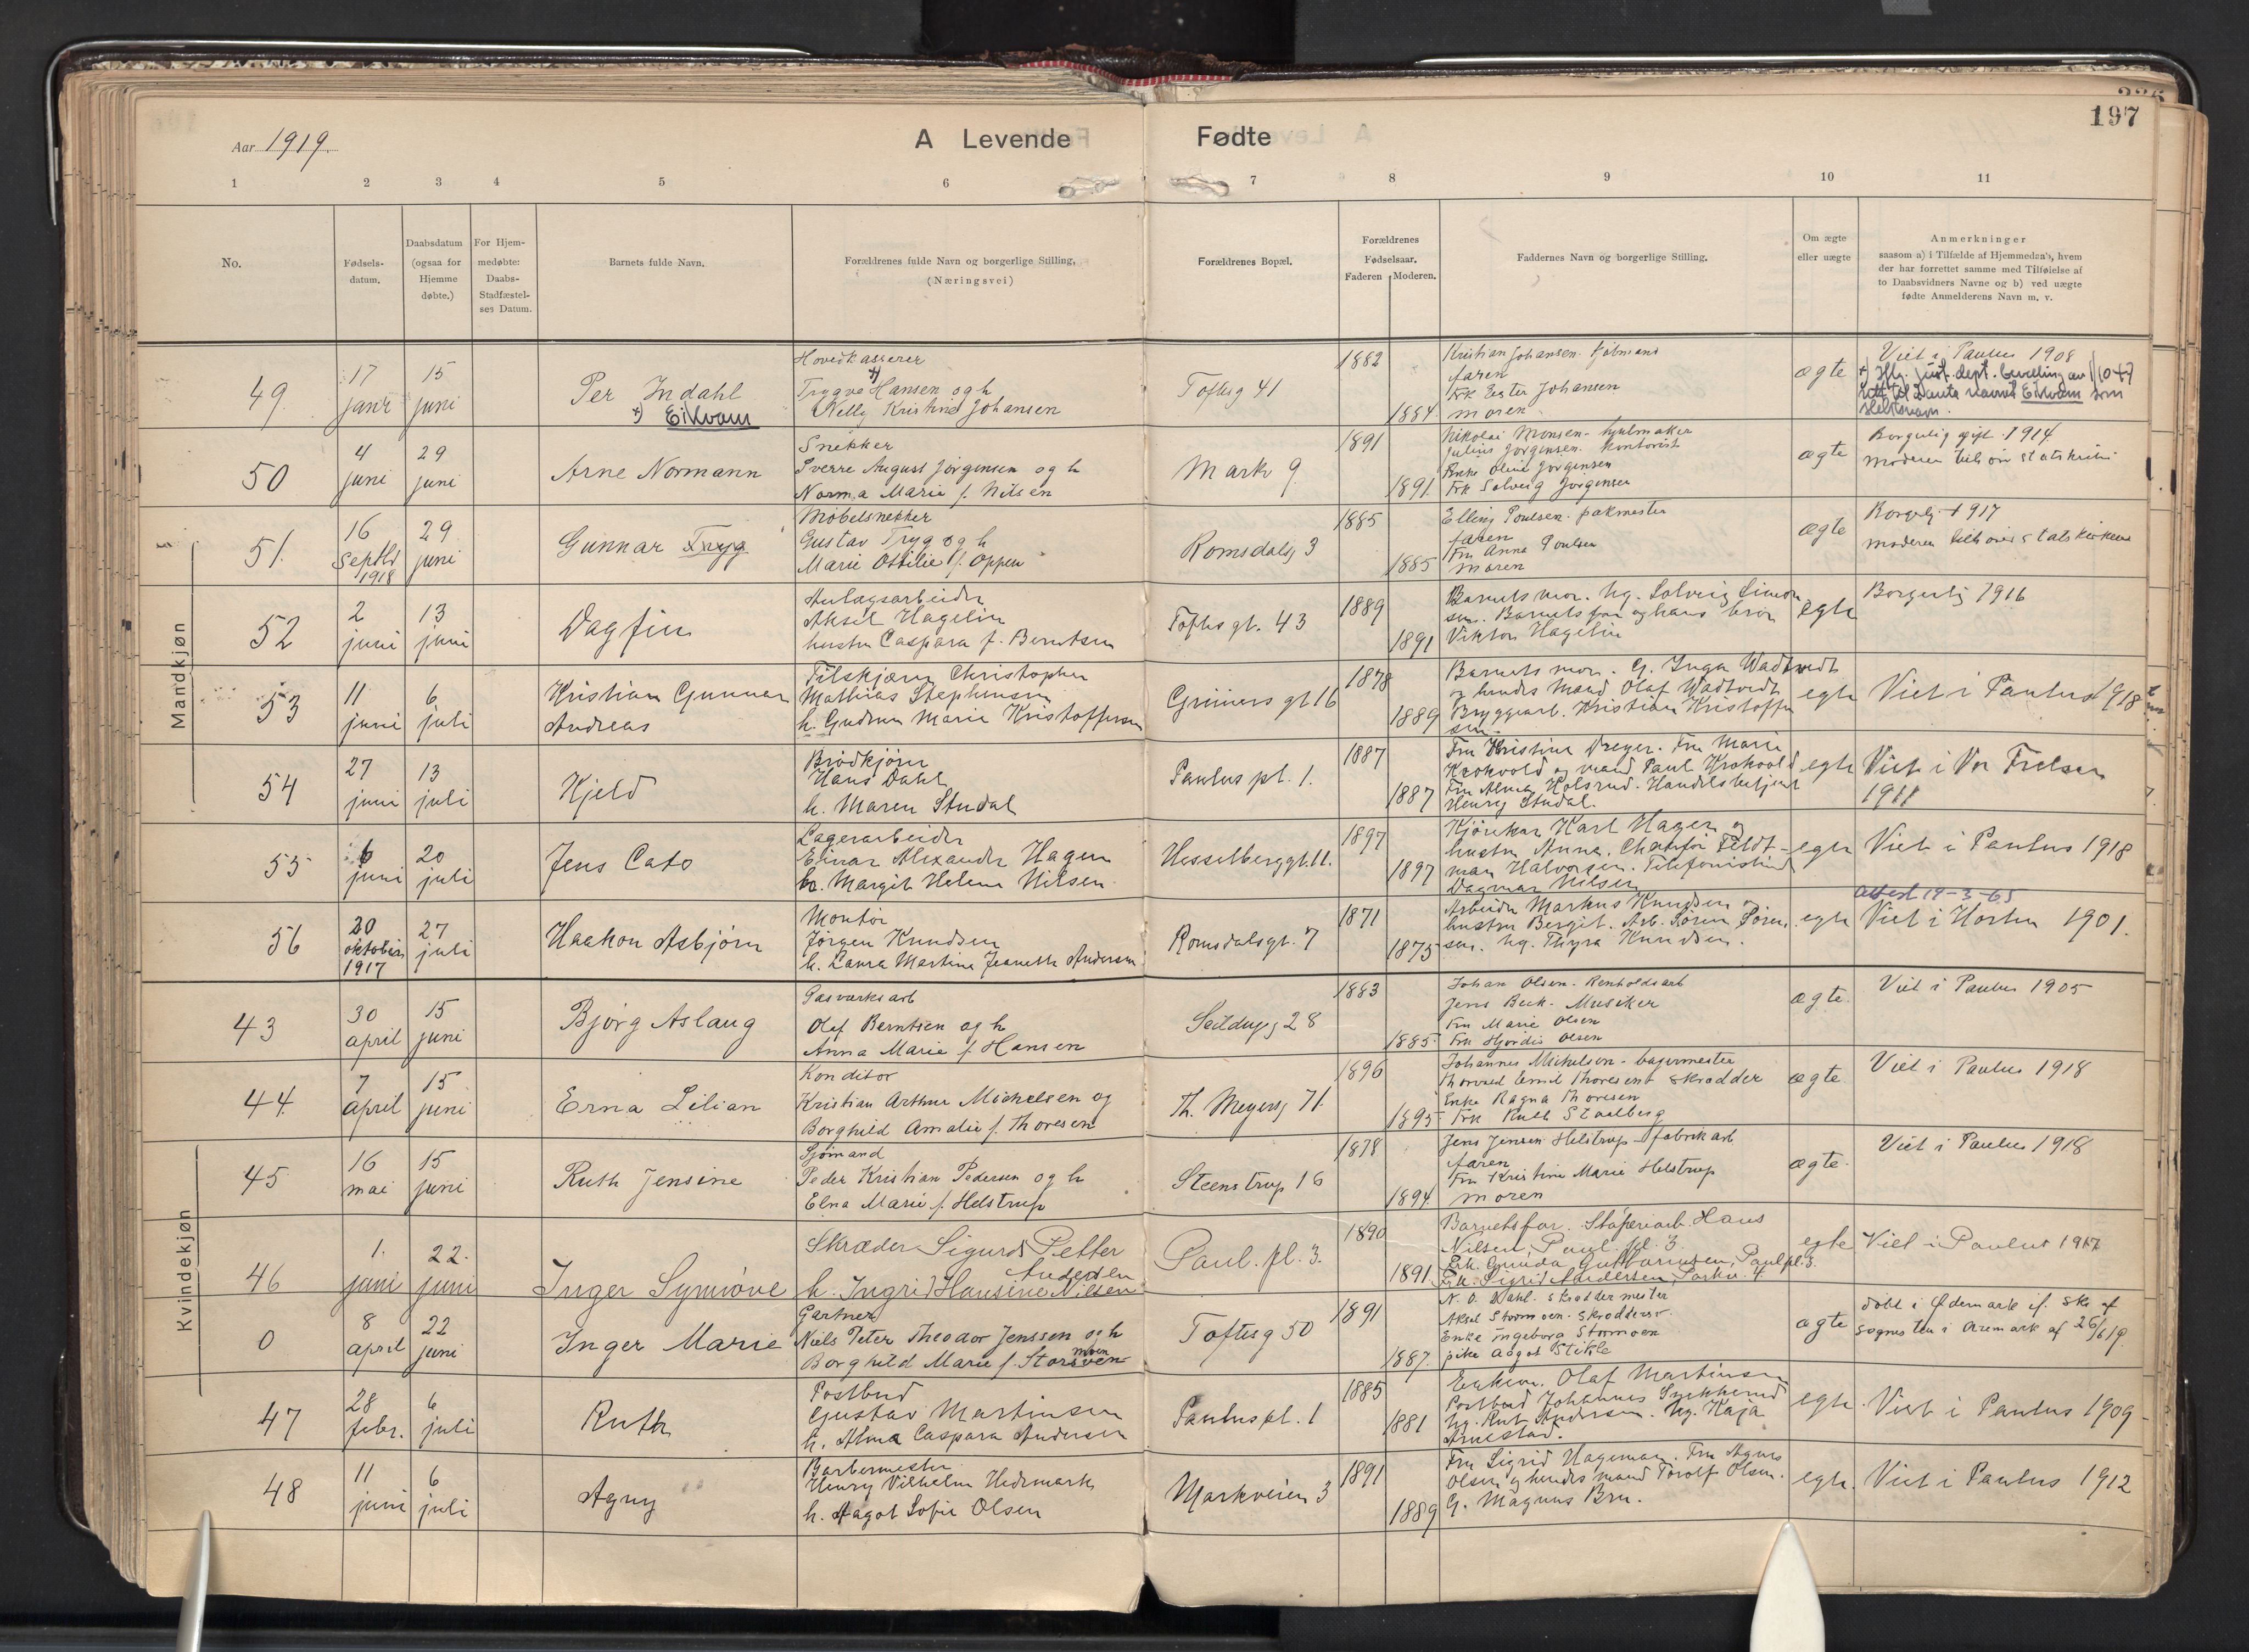 197
Aar 1919.
A Levende Fødte
1 2 3 4 5 6 7 8 9 10 11
No.
Fødsels-
datum.
Daabsdatum
(ogsaa for
Hjemme
døbte.)
For Hjem-
medøbte:
Daabs-
Stadfæstel-
ses Datum.
Barnets fulde Navn.
Forældrenes fulde Navn og borgerlige Stilling.
(Næringsvei)
Forældrenes Bopæl.
Forældrenes
Fødselsaar.
Faderen Moderen.
Faddernes Navn og borgerlige Stilling.
Om ægte
eller uægte
Anmerkninger
saasom a) i Tilfælde af Hjemmedaa's, hvem
der har forrettet samme med Tilføielse af
to Daabsvidners Navne og b) ved uægte
fødte Anmelderens Navn m. v.
Mandkjøn
49
17
janr
15
juni
Per Indahl
x) Eikvam
Hovedkasserer
Trygve Hansen og h
Nelly Kristine Johansen
Toftesg 41
1882
1884
Kristian Johansen. Kjøbmand
faren
Frk Ester Johansen
moren
ægte
Viet i Paulus 1908
50
4
juni
29
juni
Arne Normann
Snekker
Sverre August Jørgensen og h
Norma Marie f. Nilsen
Markv 9.
1891
1891.
Nikolai Monsen - hjulmaker
Julius Jørgensen. Kontorist
Enke Oline Jørgensen
Frk Solveig Jørgensen
ægte
Borgerlig gift 1914
moderen
51.
16
Septbr
1918
29
juni
Gunnar Tryg
Møbelsnekker
Gustav Tryg og h
Marie Ottilie f. Oppen
Romsdalsg 3
1885
1885
Elling Poulsen. pakmester
faren
Fru Anna Poulsen
moren
ægte
Borgerlig 1917
moderen
52
2
juni
13
juni
Dagfin
Anlægsarbeider
Aksel Hagelin
hustru Caspara f. Berntsen
Toftes gt. 43
1889
1891
Barnets mor. Ug. Solveig Simon
sen. Barnets far og hans bror
Viktor Hagelin
egte
Borgerlig 1916
53
11
juni
6
juli
Kristian Gunnar
Andreas
Filskjærer Christopher
Mathias Stephensen
h. Gudrun Marie Kristoffersen
Grüners gt 16
1878
1889
Barnets mor. G. Inga Wadtvedt
og hendes mand Olaf Wadtvedt
Bryggearb. Kristian Kristoffer
sen.
egte
Viet i Paulus 1918
54
27
juni
13
juli
Kjeld
Brødkjører
Hans Dahl
h. Maren Studal
Paulus pl. 1.
1887
1887
Fru Kristine Dreyer. Fru Marie
Krokvold og mand Paul Krokvold
Fru Alma Holsrud. Handelsbetjent
Henry Studal.
egte
Viet i Vor Frelser
1911
55
6
juni
20
juli
Jens Cato
Lagerarbeider
Einar Alexander Hagen
h. Margit Helene Nilsen
Hesselberggt. 11.
1897
1897
Kjørekar Karl Hagen og
hustru Anna. Chauffør Feldt-
man Halvorsen. Telefonistinde
Dagmar Nilsen
egte
Viet i Paulus 1918
56
20
oktober
1917
27
juli
Haakon Asbjørn
Montør
Jørgen Knudsen
h. Laura Martine Jeanette Andersen
Romsdalsgt. 7
1871
1875
Arbeider Markus Knudsen og
hustru Bergit. Arb. Søren Søren
sen. Ug. Thyra Knudsen.
egte
Attest 19-3-65
Viet i Horten 1901.
Kvindekjøn
43
30
april
15
juni
Bjørg Aslaug
Gasverksarb
Olaf Berntsen og h
Anna Marie f. Hansen
Seildugsg 28
1883
1885.
Johan Olsen. Renholdsarb
Jens Beck. Musiker
Fru Marie Olsen
Frk Hjørdis Olsen
ægte.
Viet i Paulus 1905
44.
7
april
15
juni
Erna Lilian
Konditor
Kristian Arthur Michelsen og
Borghild Amalie f. Thoresen
Th. Meyersg 71.
1896
1895
Johannes Michelsen - bagermester
Thorvald Emil Thoresen Skrædder
Enke Ragna Thoresen
Frk Ruth Staalberg
ægte
Viet i Paulus 1918
45
16
mai
15
juni
Ruth Jensine
Sjømand
Peder Kristian Pedersen og h
Elna Marie f. Helstrup
Steenstrup 16
1878
1894
Jens Jensen Helstrup - fabrikarb
faren
Fru Kristine Marie Helstrup
moren
ægte.
Viet i Paulus 1918
46
1.
juni
22.
juni
Inger Synnøve
Skræder Sigurd Petter
Andersen
h. Ingrid Hansine Nilsen
Paul. pl. 3.
1890
1891.
Barnets far. Støperiarb. Hans
Nilsen, Paul. pl. 3
Frk. Gunda Guttormsen, Paul pl. 3.
Frk. Sigrid Andersen, Parkv. 4
egte
Viet i Paulus 1917
0
8
april
22
juni
Inger Marie
Gartner
Niels Peter Theodor Jenssen og h
Borghild Marie f. Stormoen
Toftesg 50
1891
1887.
N. O. Dahl. Skræddermester
Aksel Stormoen. Skræddersv.
Enke Ingeborg Stormoen
pike Aagot Stikle
ægte
døbt i Ødemark if. Skr af
sognepresten i Aremark af 26/6 19.
47
28
febr.
6
juli
Ruth
Postbud
Gustav Martinsen
h. Alma Caspara Andersen
Paulus pl. 1
1885
1881
Enkem. Olaf Martinsen
Postbud Johannes Lykkerud
Ug. Rut Andersen. Ug. Kaja
Arnestad.
egte.
Viet i Paulus 1909
48
11
juni
6
juli
Agny
Barbermester
Henry Vilhelm Hedemark
h. Aagot Sofie Olsen
Markveien 3
1891
1889
Fru Sigrid Hageman. Fru Agnes
Olsen og hendes mand Torolf Olsen.
G. Magnus Bru.
egte.
Viet i Paulus 1912